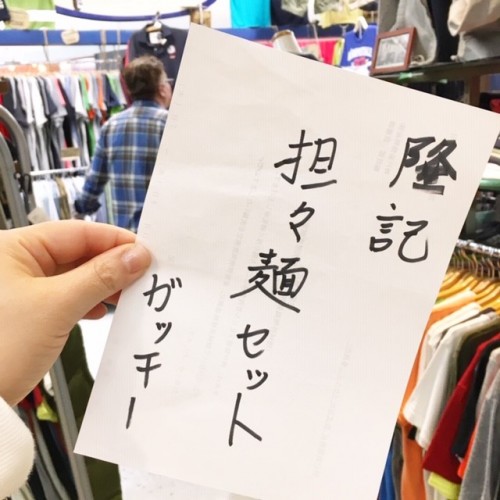 隆記
担々麺セット
ガッチー